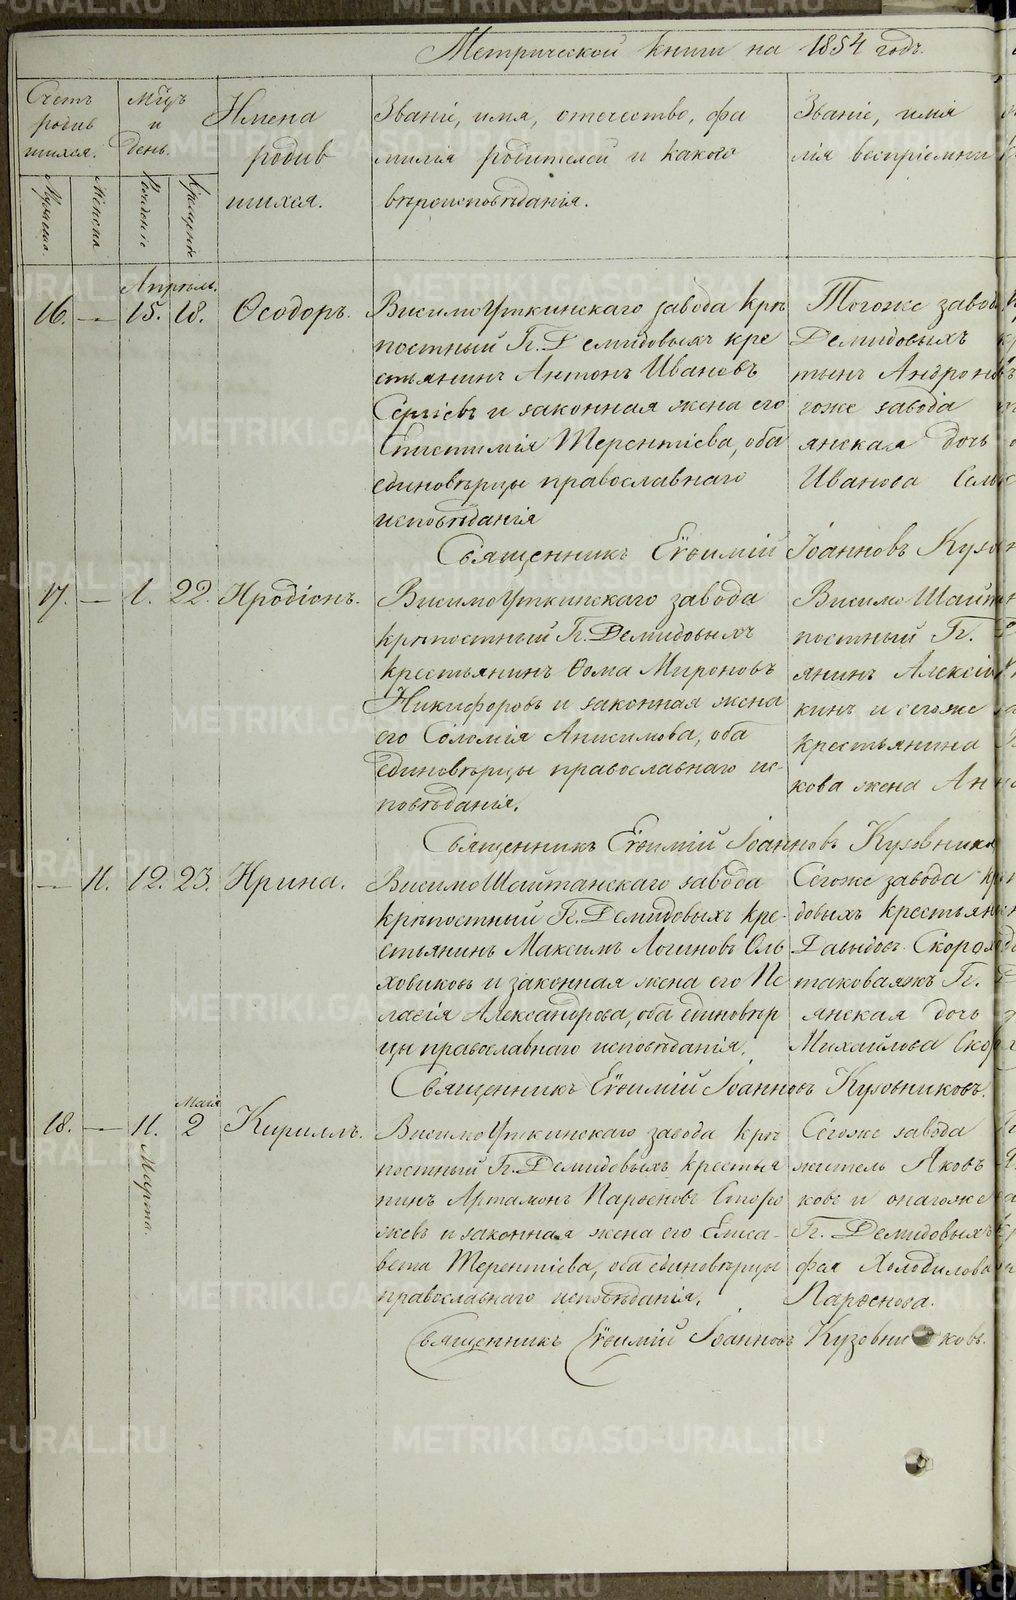 Метрической книги на 1854 годъ.
Счетъ родив шихся.
Мужеска. Женска.
Мѣцъ и день.
Рожденіе Крещеніе
Имена родив шихся.
Званіе, имя, отечество, фа
милія родителей и какого
вѣроисповѣданія.
Званіе, имя
лія воспріемни
Апрѣль.
16. — 15. 18. Ѳеодоръ.
ВисимоУткинскаго завода крѣ
постный Гг. Демидовыхъ кре
стьянинъ Антонъ Ивановъ
Сергіевъ и законная жена его
Епистимія Терентіева, оба
единовѣрцы православнаго
исповѣданія
Тогоже завод
Демидовыхъ
тынъ Андроно
гоже завода
янская дочь
Иванова
Священникъ Евѳимій Іоанновъ Кузов
17. — 1. 22. Иродіонъ.
ВисимоУткинскаго завода
крѣпостный Гг. Демидовыхъ
крестьянинъ Ѳома Мироновъ
Никифоровъ и законная жена
его Соломія Анисимова, оба
единовѣрцы православнаго ис-
повѣданія.
ВисимоШайтан
постный Гг.
янинъ Алексій
кинъ и сегоже
крестьянина
кова жена Анн
Священникъ Евѳимій Іоанновъ Кузовников
— 11. 12. 23. Ирина.
ВисимоШайтанскаго завода
крѣпостный Гг. Демидовыхъ кре-
стьянинъ Максимъ Логиновъ Оль
ховиковъ и законная жена его Пе
лагія Александрова, оба единовѣр
цы православнаго исповѣданія.
Сегоже завода кр
довыхъ крестьян
Давыдовъ Скороход
таковаяжъ Гг.
янская дочь
Михайлова Скор
Священникъ Евѳимій Іоанновъ Кузовниковъ.
Маія
18. — 11. 2 Кириллъ.
Марта.
ВисимоУткинскаго завода крѣ
постный Гг. Демидовыхъ крестья
нинъ Артамонъ Парѳеновъ Сторо
жевъ и законная жена его Елиса-
вета Терентіева, оба единовѣрцы
православнаго исповѣданія.
Сегоже завода
житель Яковъ
ковъ и онагоже
Гг. Демидовыхъ
фая Холодилова
Парѳенова.
Священникъ Евѳимій Іоанновъ Кузовниковъ.
METRIKI.GASO-URAL.RU